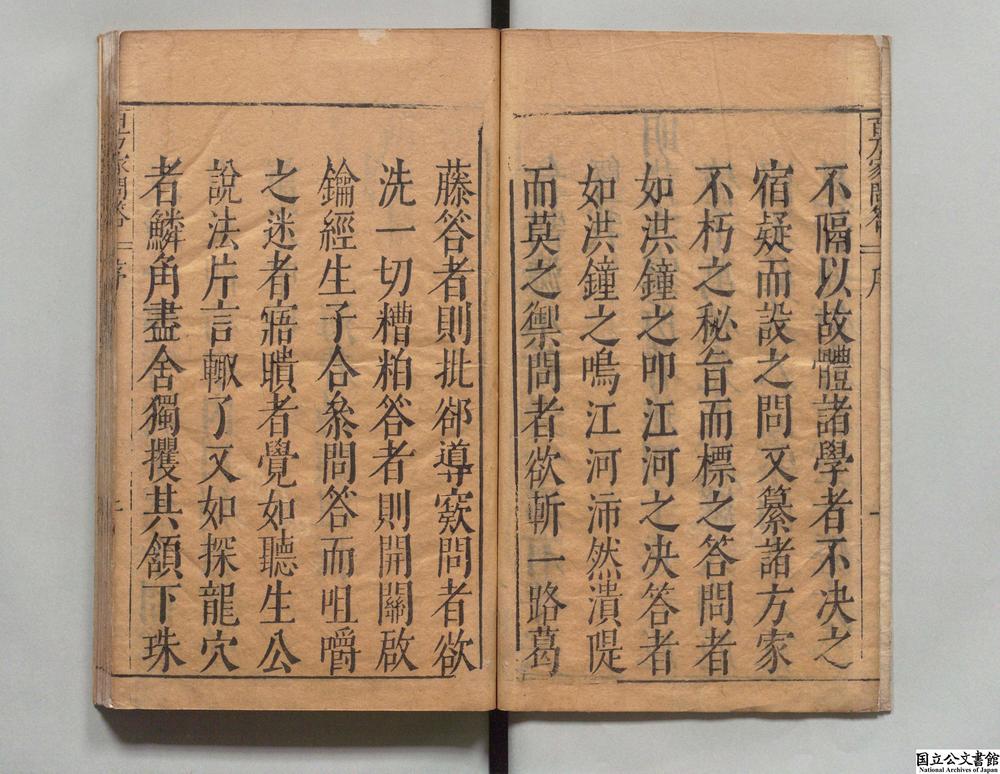 不隔以故體諸學者不决之
宿疑而設之問又纂諸方家
不朽之秘旨而標之答問者
如洪鐘之叩江河之决答者
如洪鐘之鳴江河沛然潰隄
而莫之禦問者欲斬一路葛
藤答者則批郤導窾問者欲
洗一切糟粕答者則開關啟
鑰經生子合叅問答而咀嚼
之迷者寤瞶者覺如聽生公
說法片言輙了又如探龍穴
者鱗角盡舍獨攫其頷下珠
国立公文書館
National Archives of Japan